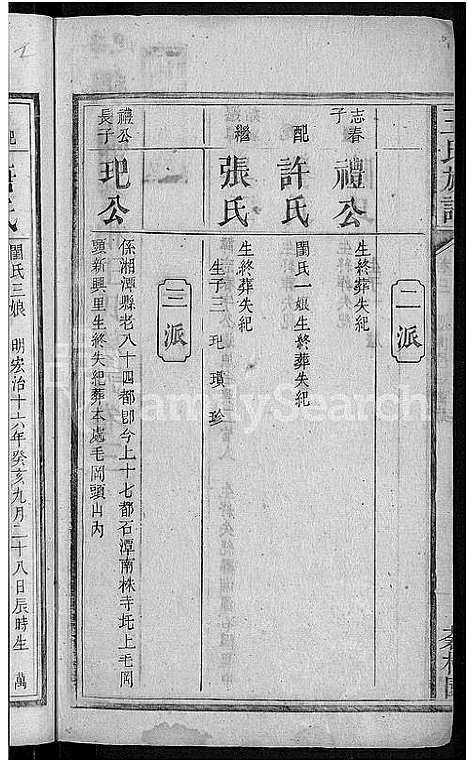 王氏族譜
二派
志春子
禮公
生終葬失紀
配
許氏
閨氏一娘生終葬失紀
繼
張氏
生終葬失紀
生子三 玘瓆珍
三派
禮公長子
玘公
係湘潭縣老八十四都卽今上十七都石潭南林寺圫上毛岡
頭新興里生終失紀葬本處毛岡頭山內
閨氏三娘 明宏治十六年癸亥九月二十八日辰時生 萬
FamilySearch